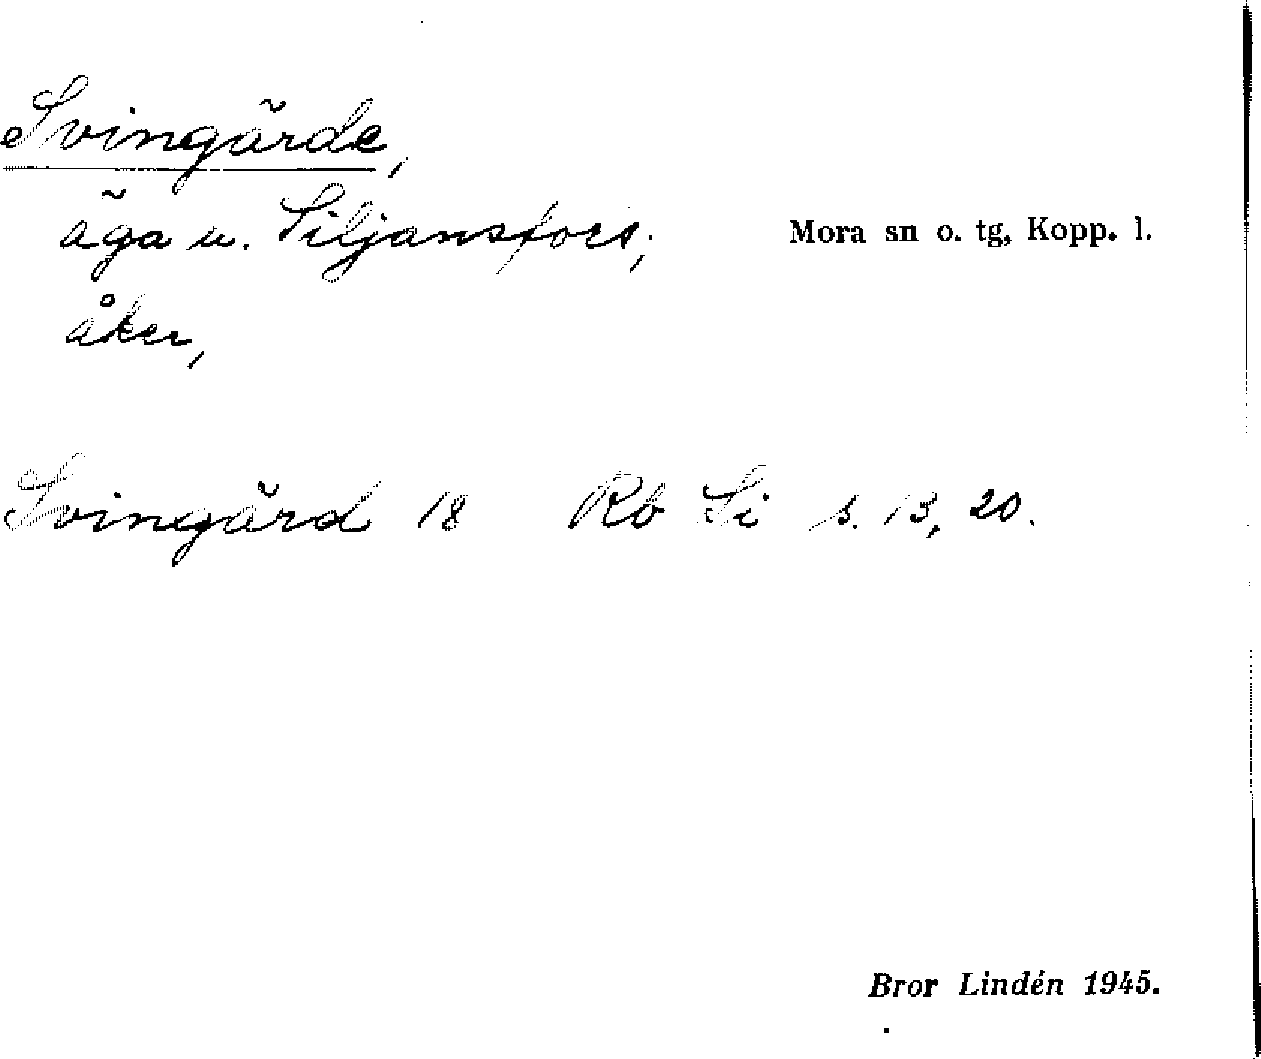 Svingärde,
äga u. Siljansfors,
Mora sn o. tg, Kopp. l.
åker,
Svingärd 18 Rb Si s. 13, 20.
Bror Lindén 1945.